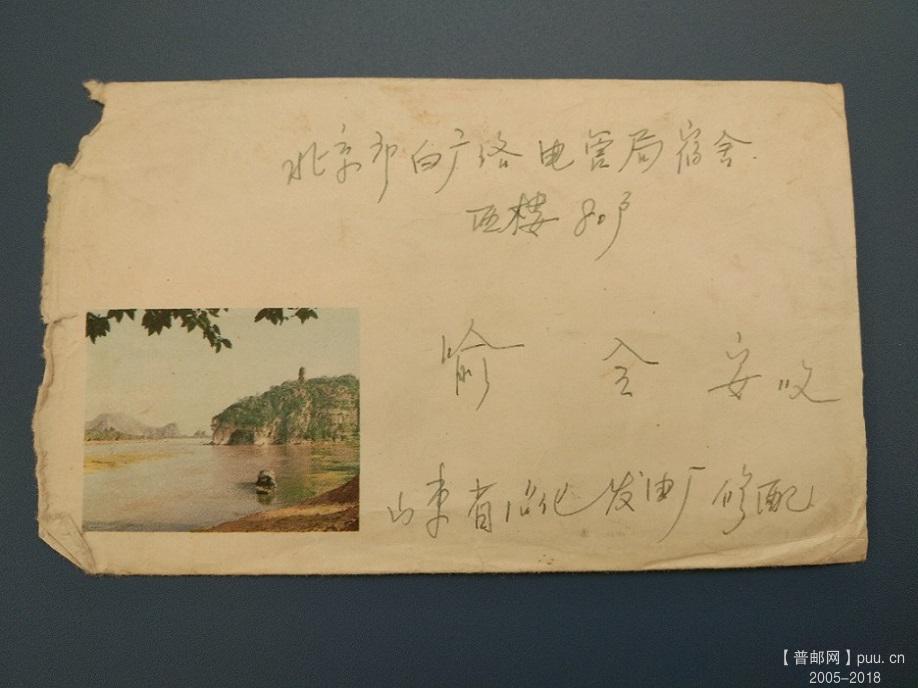 北京市白广路电管局宿舍
西楼80户
喻全安收
山东省沾化发电厂修配
【普邮网】puu.cn
2005-2018